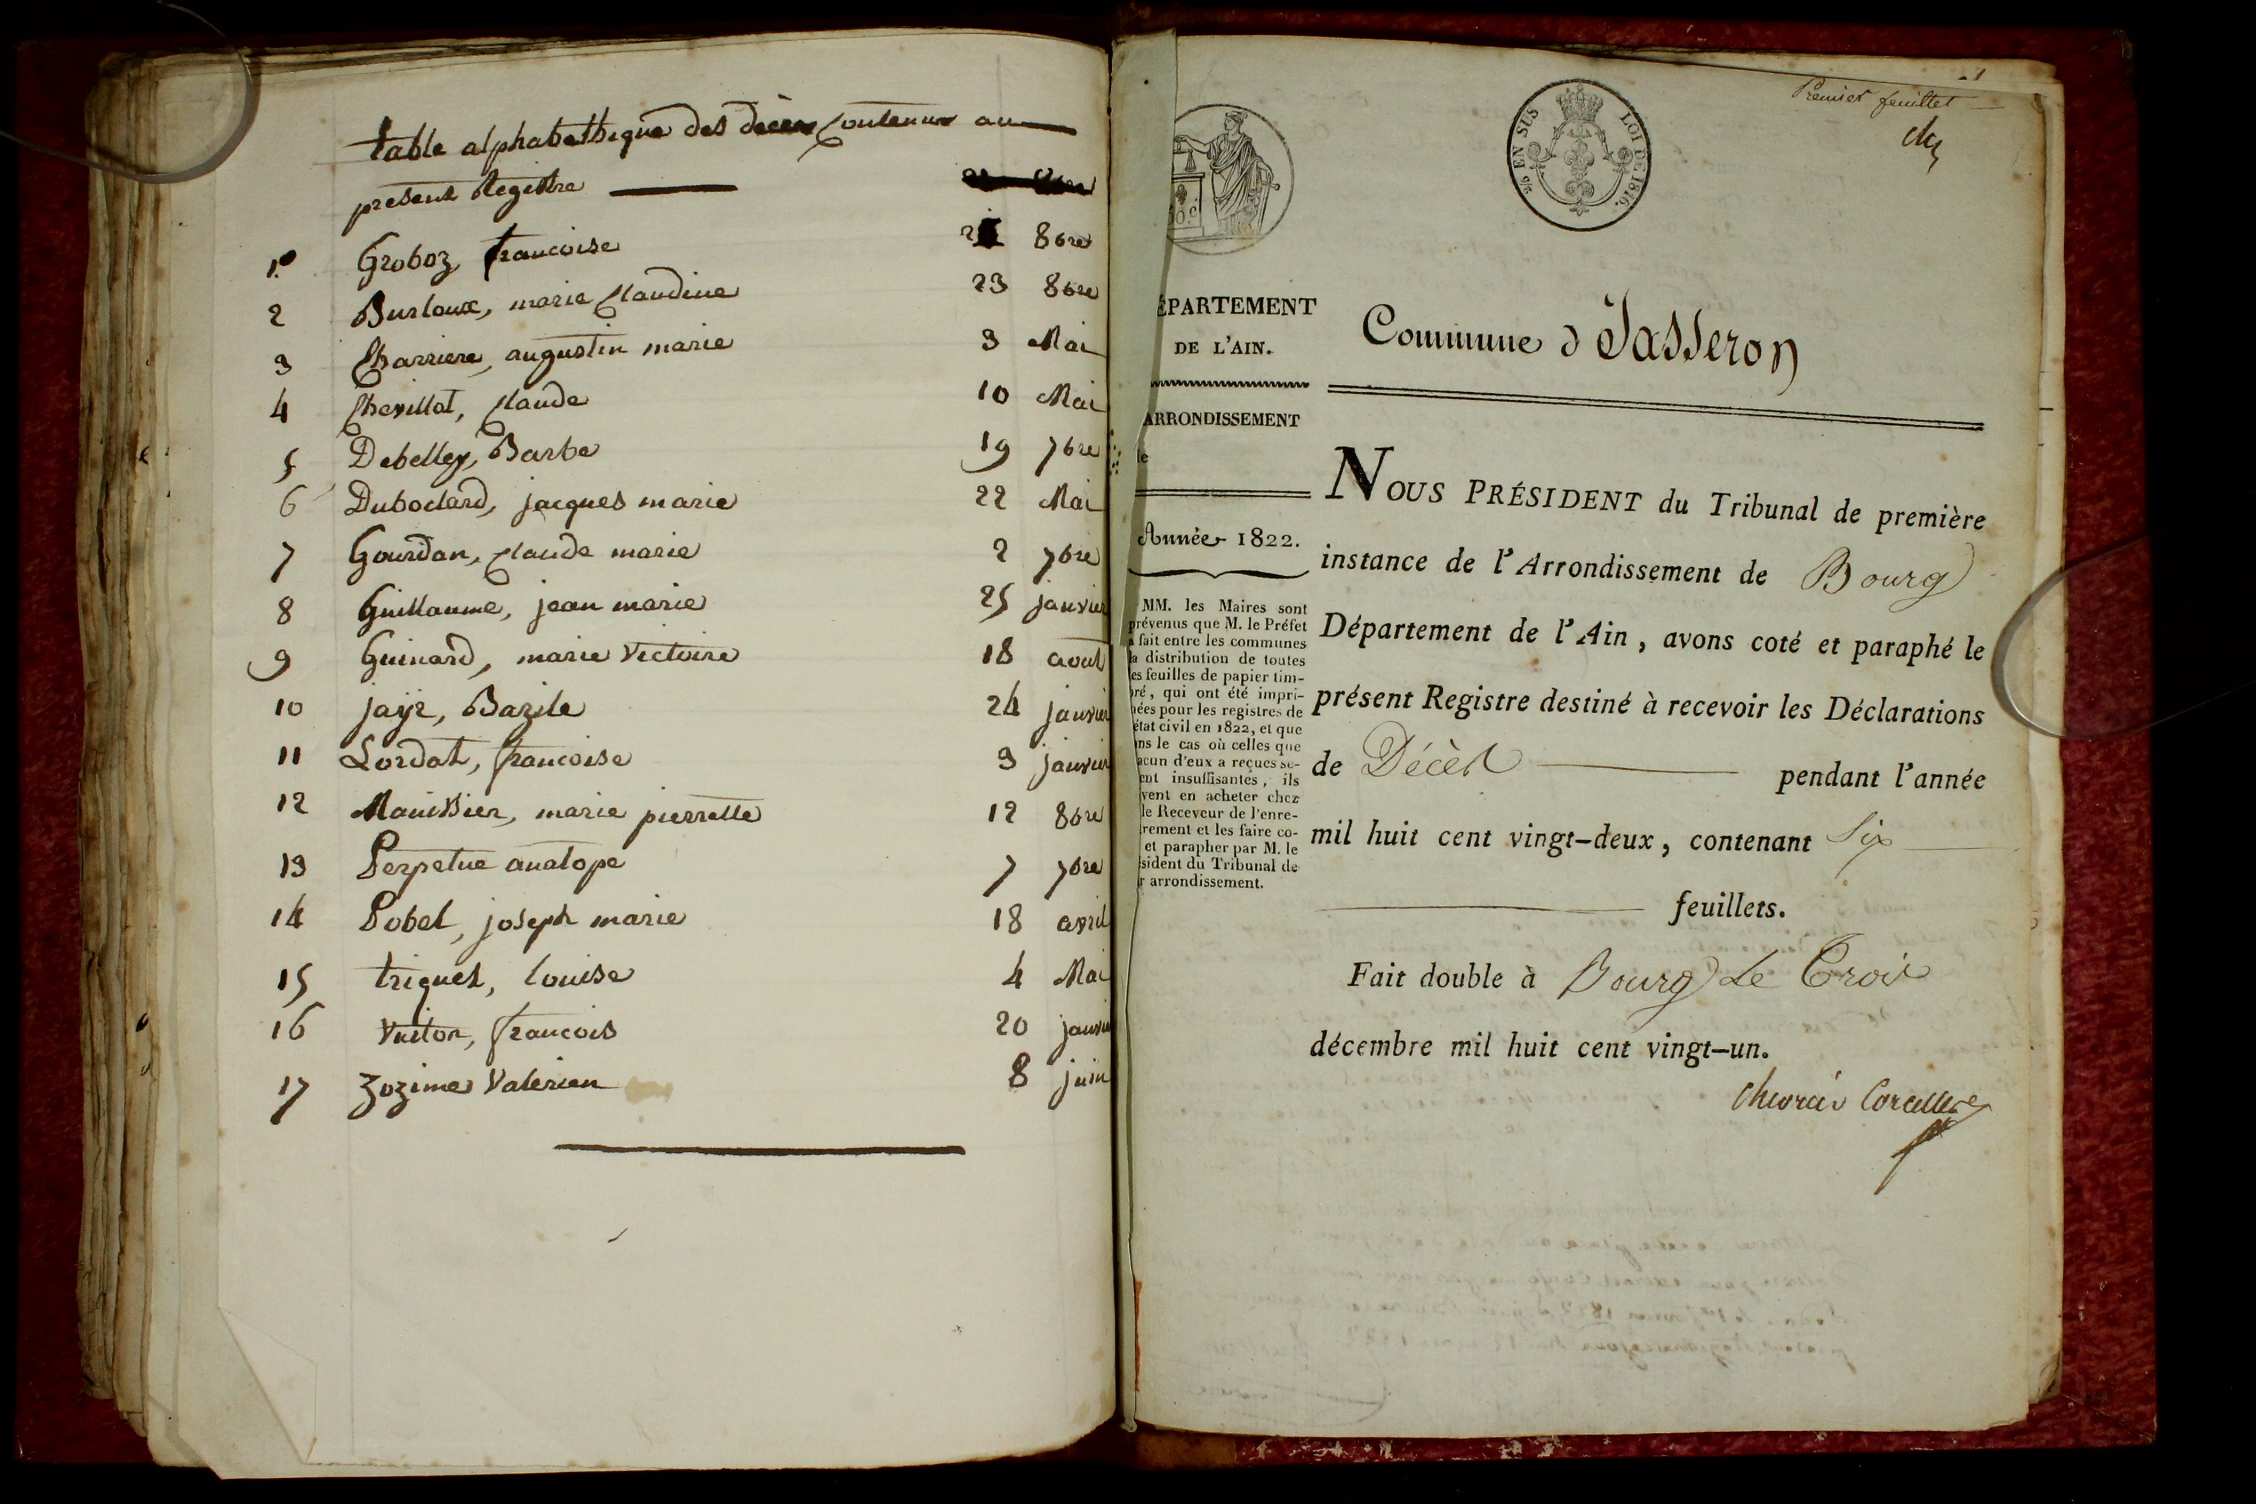 table alphabethique des décès contenus au
présent Registre
1° Groboz francoise 8bre
2 Burloux, marie Claudine 23 8bre
3 Charriere, augustin marie 3 Mai
4 Chevillot, Claude 10 Mai
5 Debelley, Barbe 19 7bre
6 Duboclard, jacques marie 22 Mai
7 Gourdan, Claude marie 2 7bre
8 Guillaume, jean marie 25 janvier
9 Guinard, marie Victoire 18 aout
10 jayr, Bazile 24 janvier
11 Lordat, francoise 3 janvier
12 Maissier, marie pierrette 12 8bre
13 Perpetue analope 7 7bre
14 Pobel, joseph marie 18 avril
15 triquet, louise 4 Mai
16 Vuiton, francois 20 janvi
17 Zozime Valerien 8 juin
Premier feuillet
EN SUS LOI DE 1816.
ÉPARTEMENT
DE L'AIN.
ARRONDISSEMENT
Année 1822.
MM. les Maires sont
prévenus que M. le Préfet
a fait entre les communes
la distribution de toutes
es feuilles de papier tim-
bré, qui ont été impri-
ées pour les registres de
état civil en 1822, et que
ns le cas où celles que
acun d'eux a reçues se-
ent insuffisantes, ils
vent en acheter chez
le Receveur de l'enre-
rement et les faire co-
et parapher par M. le
sident du Tribunal de
r arrondissement.
Commune d Jasseron
NOUS PRÉSIDENT du Tribunal de première
instance de l'Arrondissement de Bourg
Département de l'Ain, avons coté et paraphé le
présent Registre destiné à recevoir les Déclarations
de Décès pendant l'année
mil huit cent vingt-deux, contenant Six
feuillets.
Fait double à Bourg Le Trois
décembre mil huit cent vingt-un.